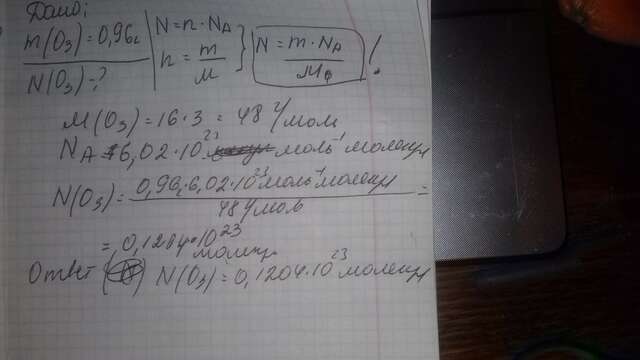 Дано:
m(O₃)=0,96г | N=n·Nᴀ
N(O₃)-? | n=m/M } N=m·Nᴀ/M !
M(O₃)=16·3=48 г/моль
Nᴀ=6,02·10²³ моль⁻¹ молекул
N(O₃)=0,96г·6,02·10²³моль⁻¹молекул/48 г/моль=
=0,1204·10²³ молекул
Ответ N(O₃)=0,1204·10²³ молекул